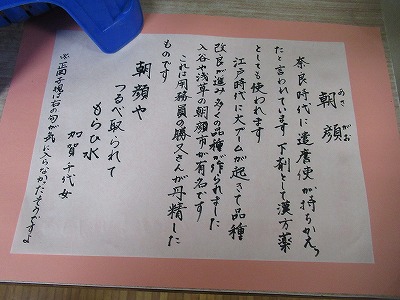 朝顔
あさ がお
奈良時代に遣唐使が持ちかえっ
たと言われています 下剤として漢方薬
としても使われます
江戸時代に大ブームが起きて品種
改良が進み多くの品種が作られました
入谷や浅草の朝顔市が有名です
これは用務員の勝又さんが丹精した
ものです
朝顔や
つるべ取られて
もらひ水
加賀千代女
※正岡子規は右の句が気に入らなかったそうですよ